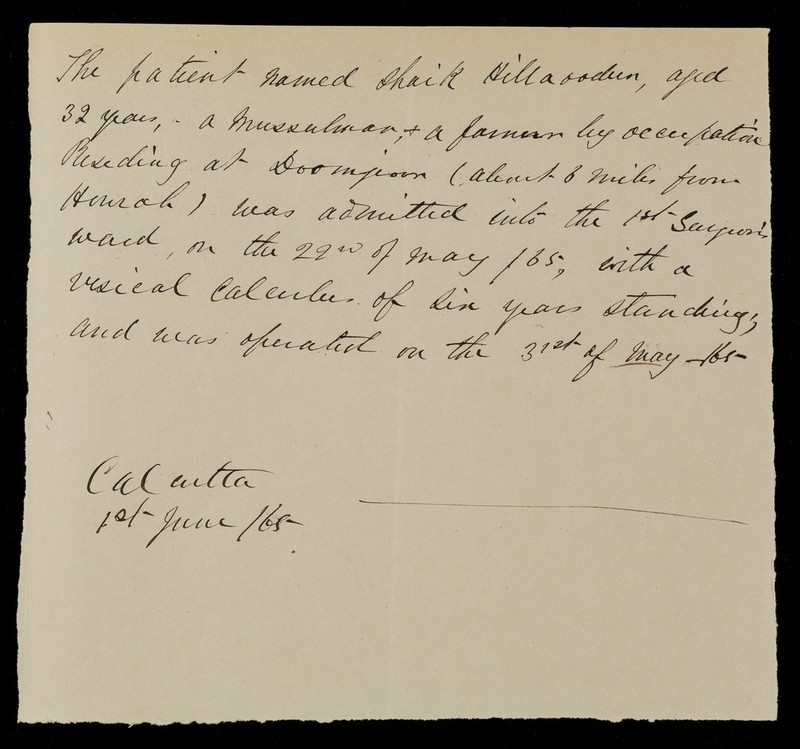 The patient named Shaik Hillaooden, aged
32 years, - a Mussulman, & a farmer by occupation
Residing at Doomjoor (about 6 miles from
Howrah) was admitted into the 1st Surgeon's
ward, on the 22nd of May /65, with a
vesical calculus of six years standing,
and was operated on the 31st of May -/65-
Calcutta
1st June /65-